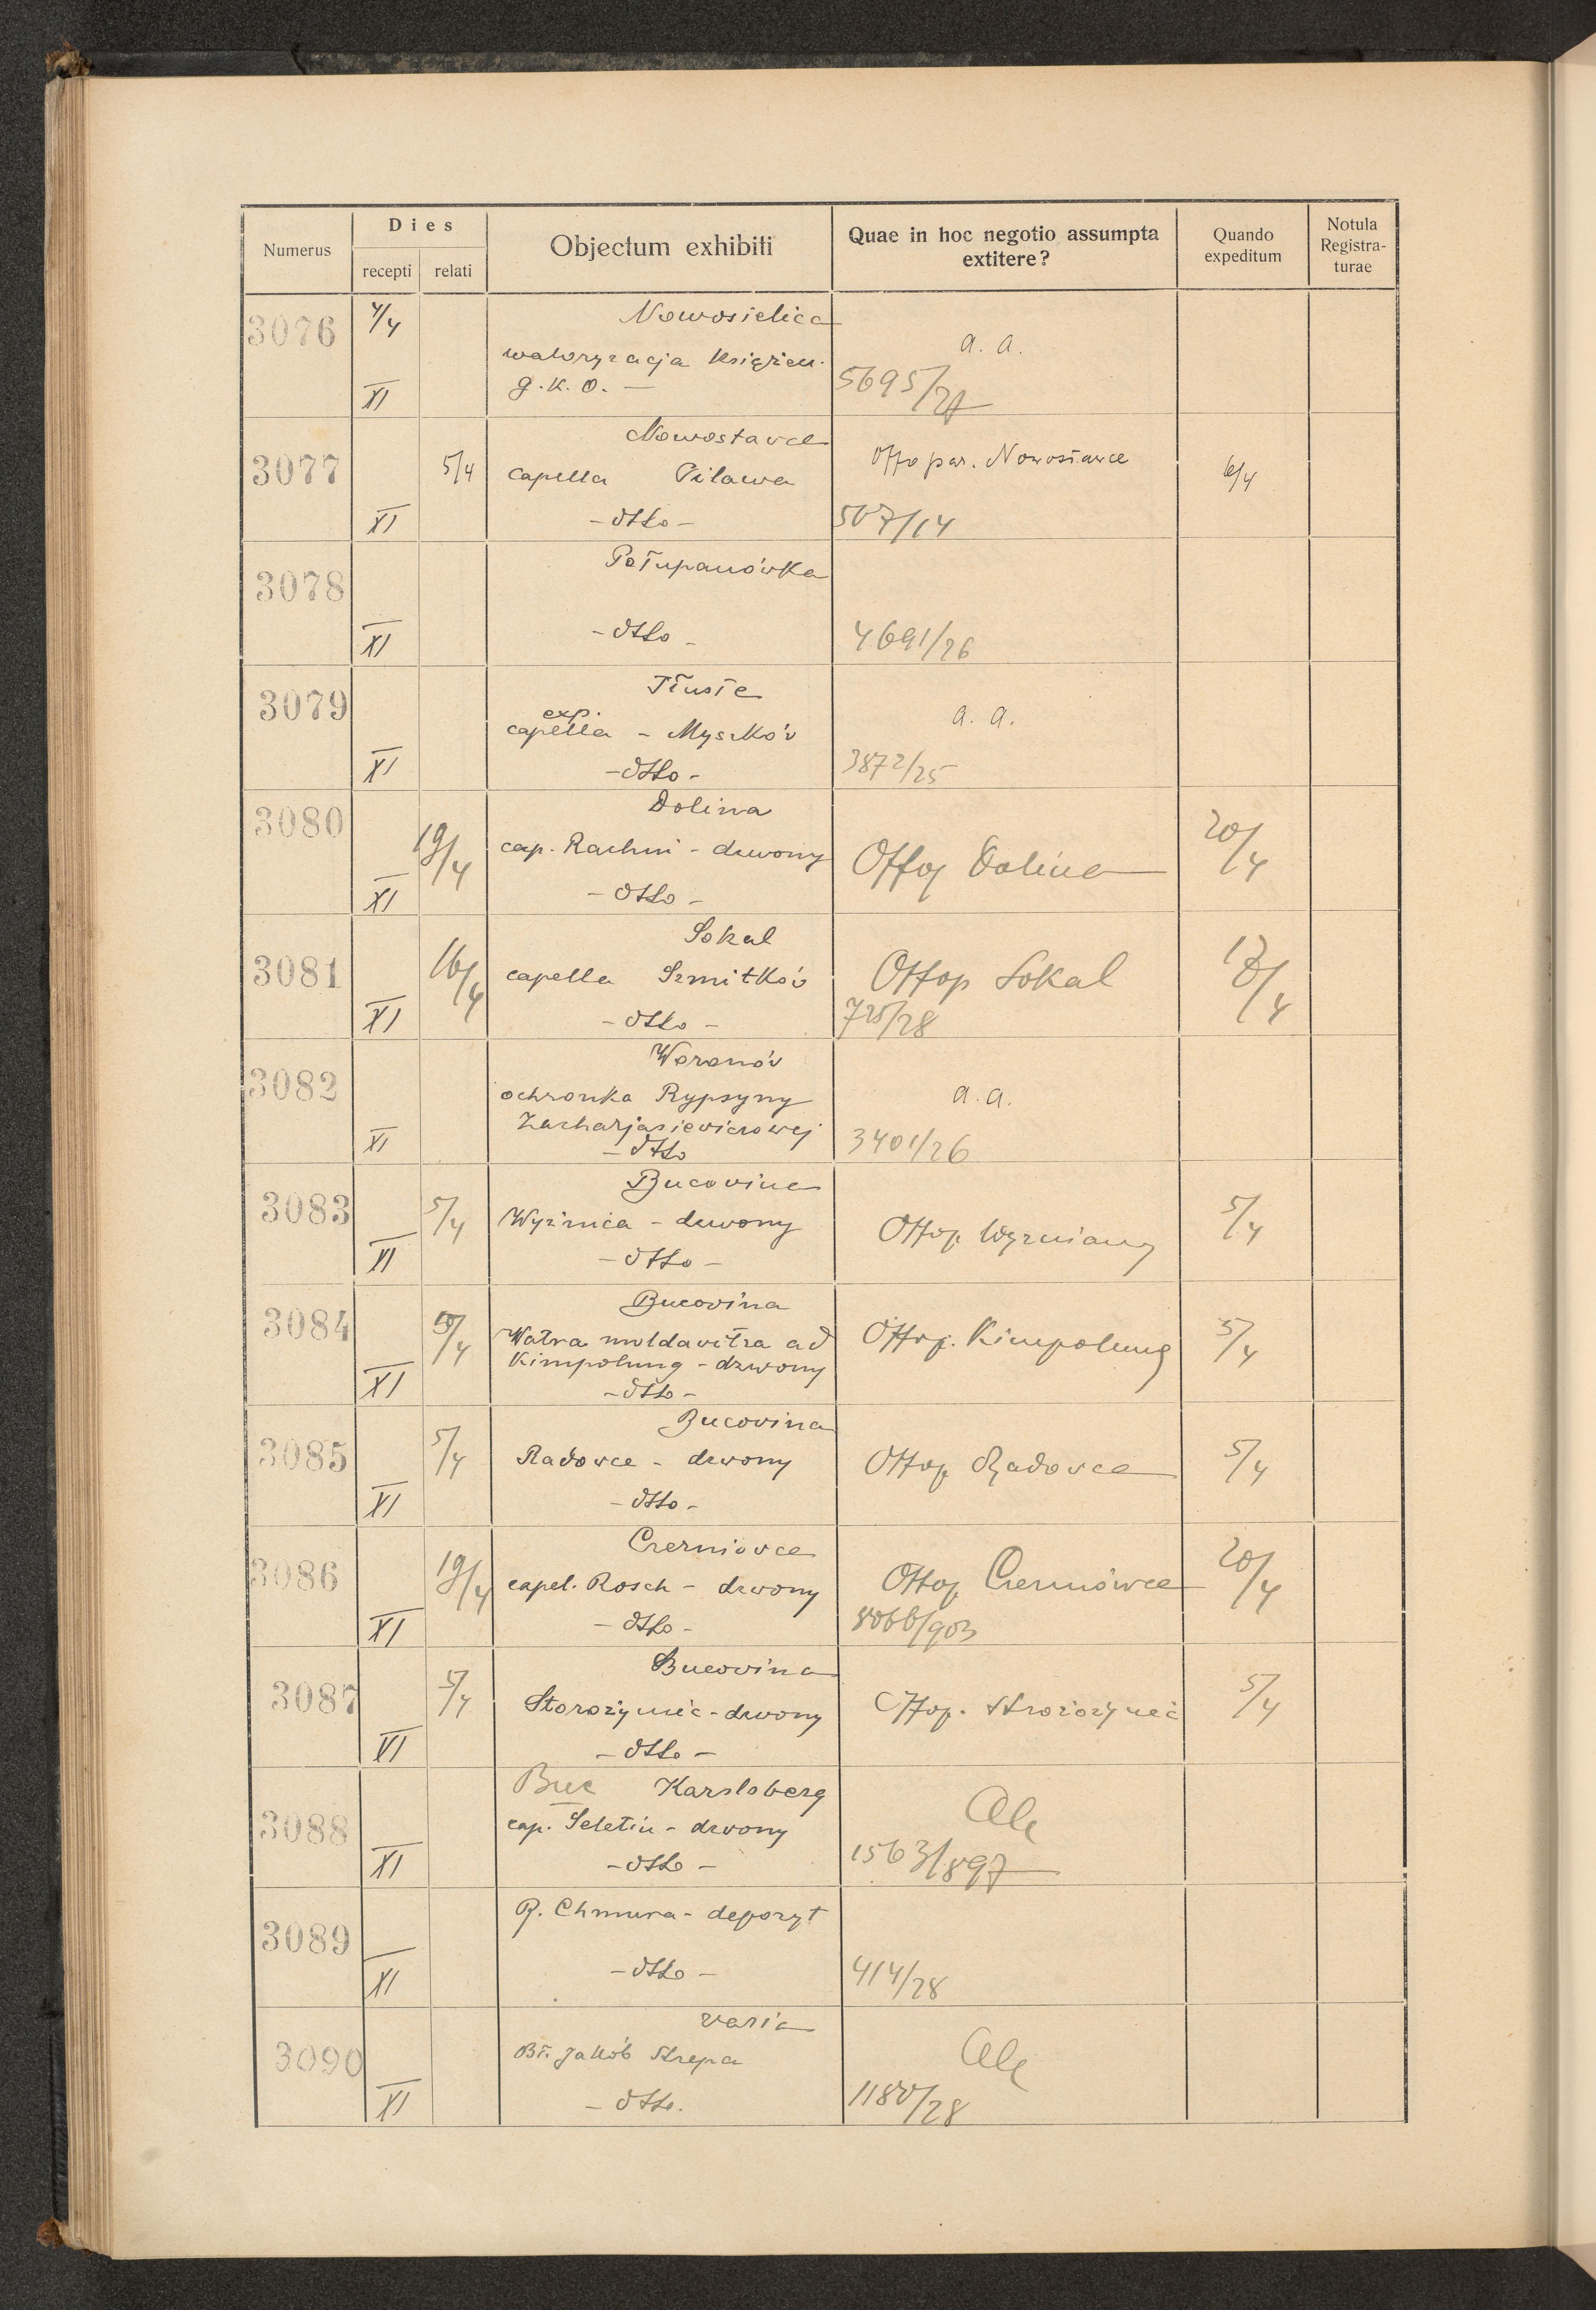 Numerus
Dies
recepti
relati
Objectum exhibiti
Quae in hoc negotio assumpta extitere?
Quando expeditum
Notula Registra-turae
3076 4/4 Nowosielica
waloryzacja Książecz. a. a.
XI g. K. O. — 5695/27
3077 5/4 Nowostawce
capella Pilawa Offo par. Nowostawce 6/4
XI - dtto - 507/14
3078 Połupanówka
XI - dtto - 4691/26
3079 Tłuste
exp.
capella - Myszków a. a.
XI - dtto - 3872/25
3080 19/4 Dolina 20/4
cap. Rachiń - dzwony Offop Dolina
XI - dtto -
3081 16/4 Sokal
capella Szmitków Offop Sokal
XI - dtto - 725/28
3082 Woronów
ochronka Rypsyny a. a.
Zacharjasiewiczowej
XI - dtto 3401/26
3083 5/4 Bucovina 5/4
Wyżnica - dzwony Offop.
XI - dtto -
3084 Bucovina 5/4
Watra moldavitza ad Offop. Kimpolung
Kimpolung - dzwony
XI - dtto -
3085 5/4 Bucovina 5/4
Radowce - dzwony Offop Radowce
XI - dtto -
3086 19/4 Czerniowce 20/4
capel. Rosch - dzwony Offop Czerniówce
XI - dtto - 8066/903
3087 5/4 Bucovina 5/4
Storożyniec - dzwony Offop. Strorożyneć
XI - dtto -
3088 Buc Karlsberg
cap. Seletin - dzwony
XI - dtto - 1563/897
3089 R. Chmura - depozyt
XI - dtto - 414/28
3090 varia
Bł. Jakób Strepa
XI - dtto. 1180/28